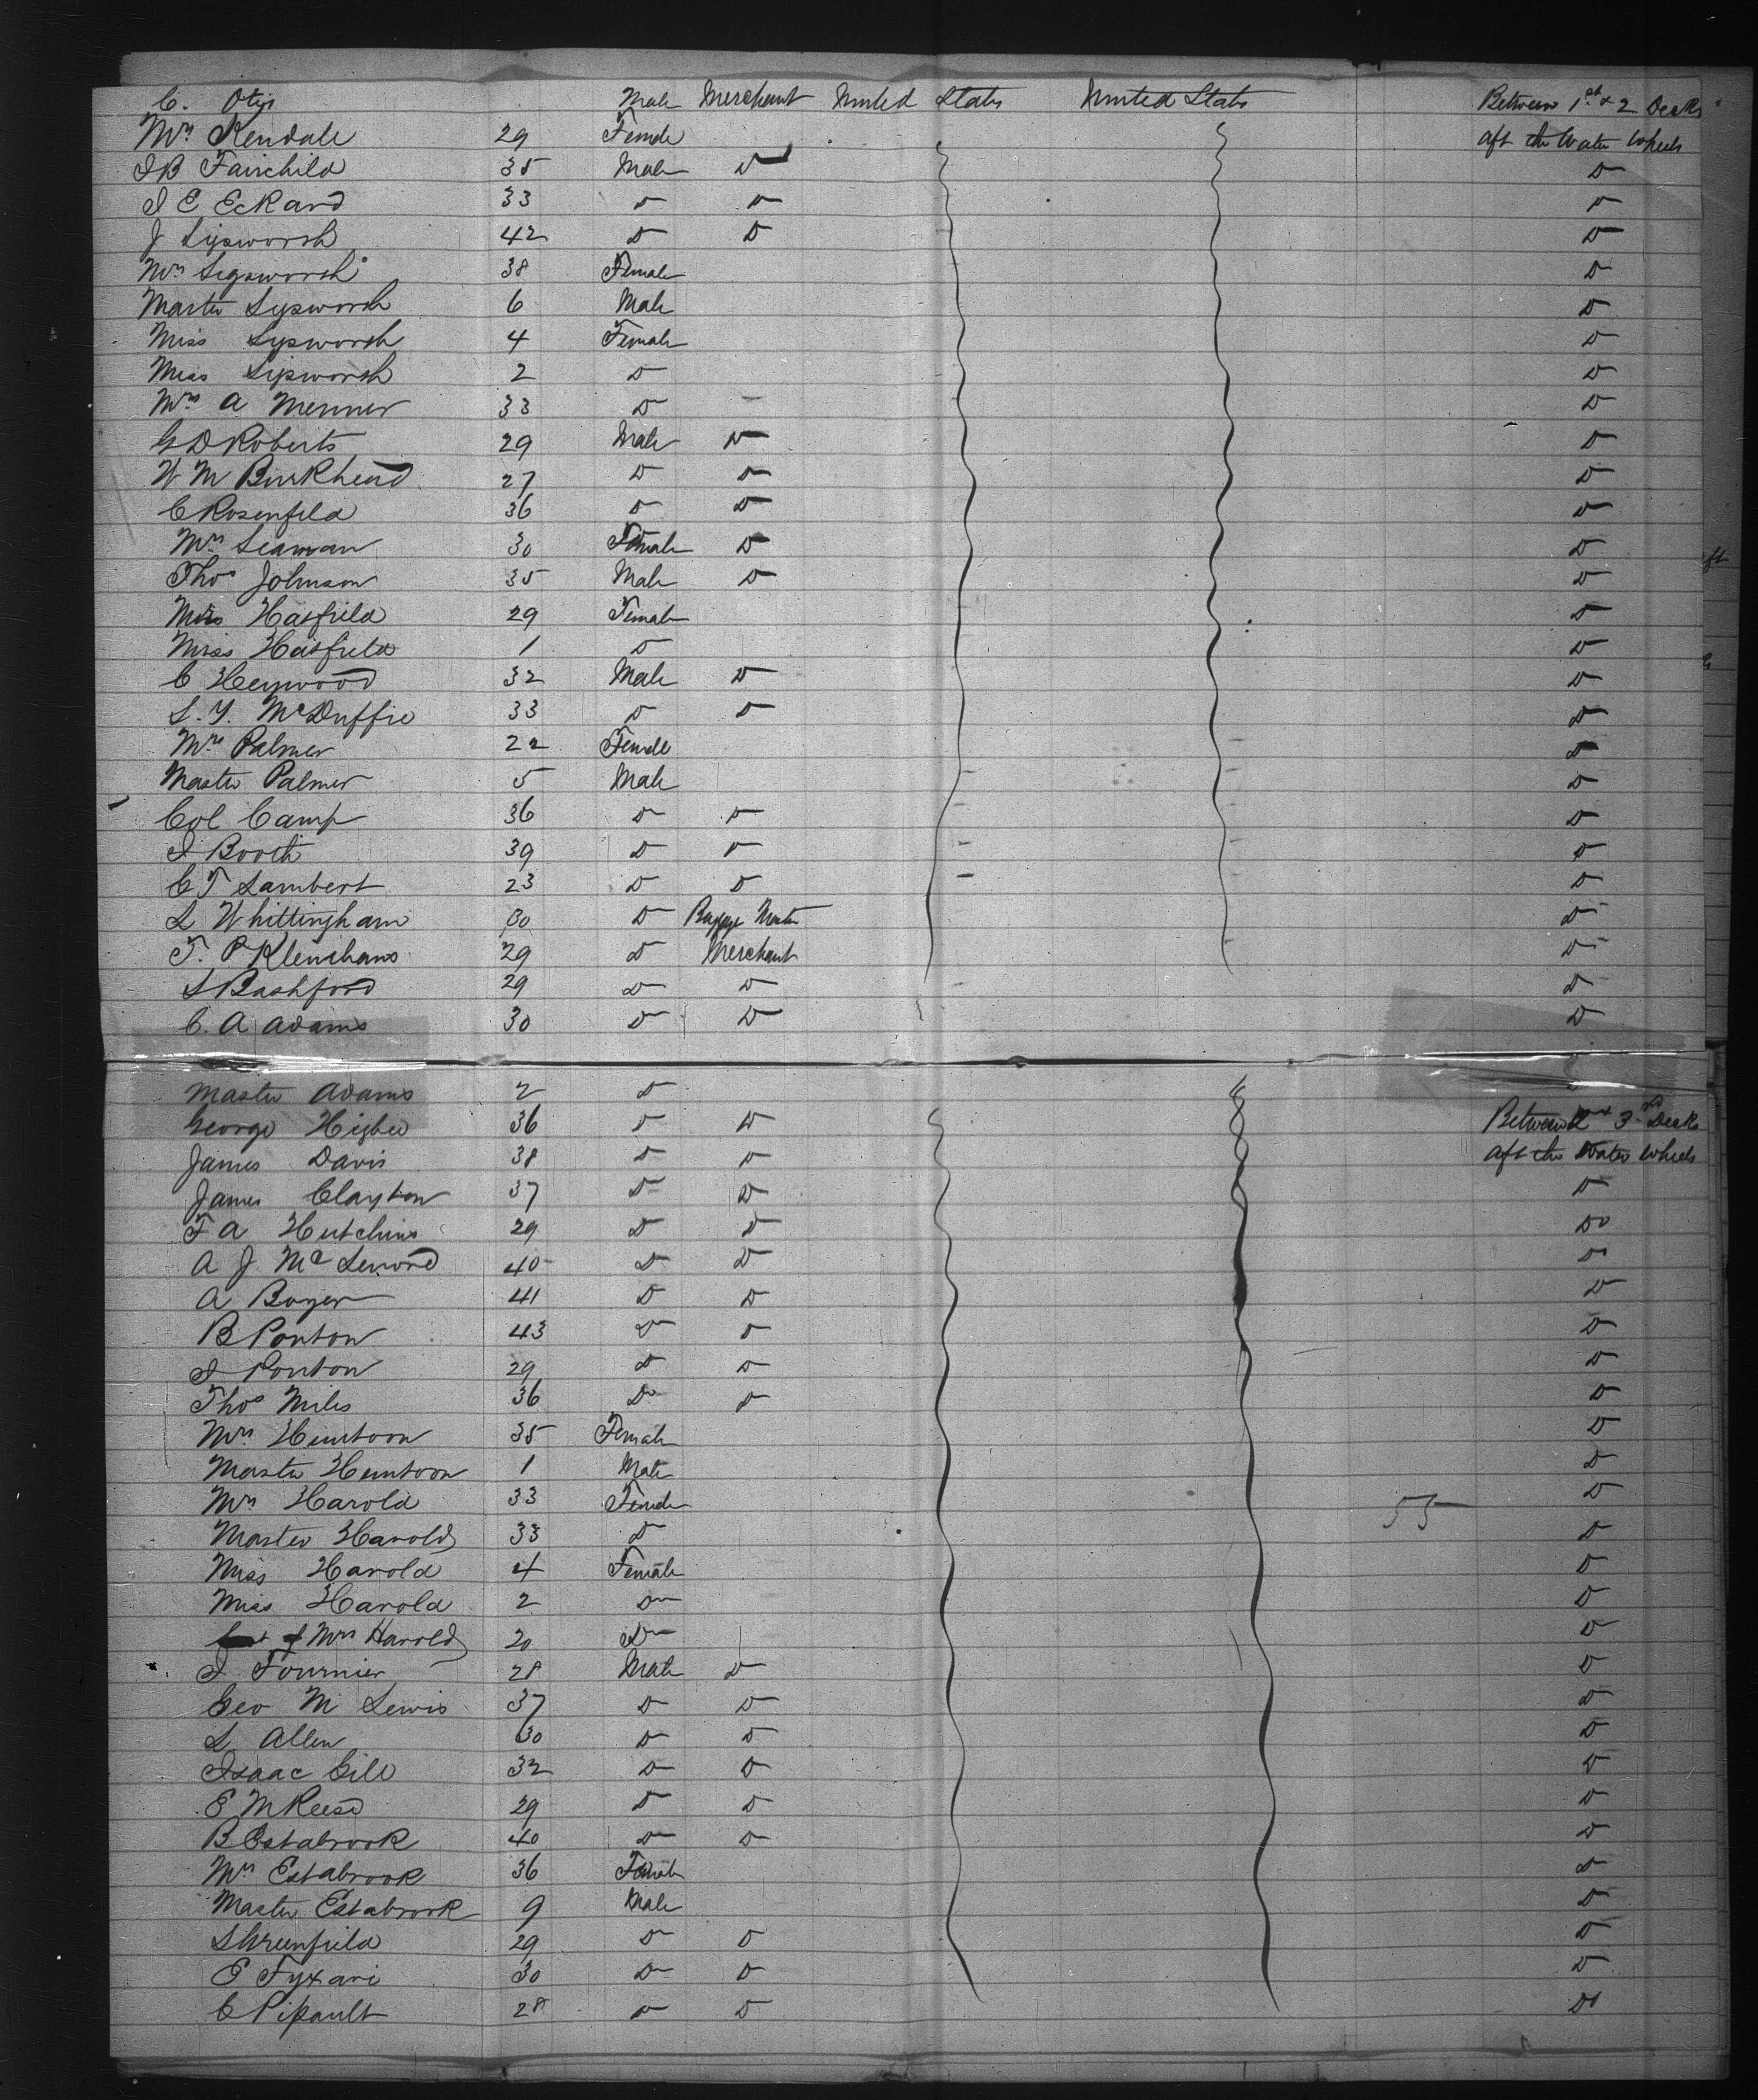 C. Otis Male Merchant United States United States Between 1st & 2 Decks
Mrs Kendale 29 Female aft the Water Wheels
I B Fairchild 35 Male D D
I E Eckard 33 D D D
J Sigsworth 42 D D D
Mrs Sigsworth 38 Female D
Master Sigsworth 6 Male D
Miss Sigsworth 4 Female D
Miss Sigsworth 2 D D
Mrs A Menner 33 D D
G D Roberts 29 Male D D
W M Burkhead 27 D D D
C Rosenfeld 36 D D D
Mrs Seaman 30 Female D D
Thos Johnson 35 Male D D
Mrs Hatfield 29 Female D
Miss Hatfield 1 D D
C Heywood 32 Male D D
S. Y. McDuffie 33 D D D
Mrs Palmer 22 Female D
Master Palmer 5 Male D
Col Camp 36 D D D
I Booth 39 D D D
C T Lambert 23 D D D
L Whittingham 30 D Baggage Master D
T. P Klenshans 29 D Merchant D
S Bashford 29 D D D
C. A Adams 30 D D D
Master Adams 2 D
George Higbee 36 D D Between 2 & 3rd Decks
James Davis 38 D D aft the Water Wheels
James Clayton 37 D D D
F A Hutchins 29 D D Do
A J Mc 40 D D Do
A Boyer 41 D D D
B Ponton 43 D D D
I Ponton 29 D D D
Thos Miles 36 Do D D
Mrs Huntoon 35 Female D
Master Huntoon 1 Male D
Mrs Harold 33 Female D
Master Harold 33 D D
Miss Harold 4 Female D
Miss Harold 2 D D
of Mrs Harold 20 D D
I Fournier 28 Male D D
Geo M Lewis 37 D D D
L Allen 30 D D D
Isaac Gill 32 D D D
E M Reese 29 D D D
B Estabrook 40 D D D
Mrs Estabrook 36 Female D
Master Estabrook 9 Male D
S Greenfield 29 D D D
E Fyxari 30 D D D
C Pipault 28 D D Do
55